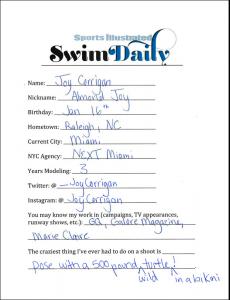 Sports Illustrated
SwimDaily
Name: Joy Corrigan
Nickname: Almond Joy
Birthday: Jan 16th
Hometown: Raleigh, NC
Current City: Miami
NYC Agency: NEXT Miami
Years Modeling: 3
Twitter: @ _JoyCorrigan
Instagram: @ JoyCorrigan
You may know my work in (campaigns, TV appearances,
runway shows, etc.): GQ, Galore Magazine,
Marie Claire
The craziest thing I've ever had to do on a shoot is
Pose with a 500 pound turtle!
wild in a bikini